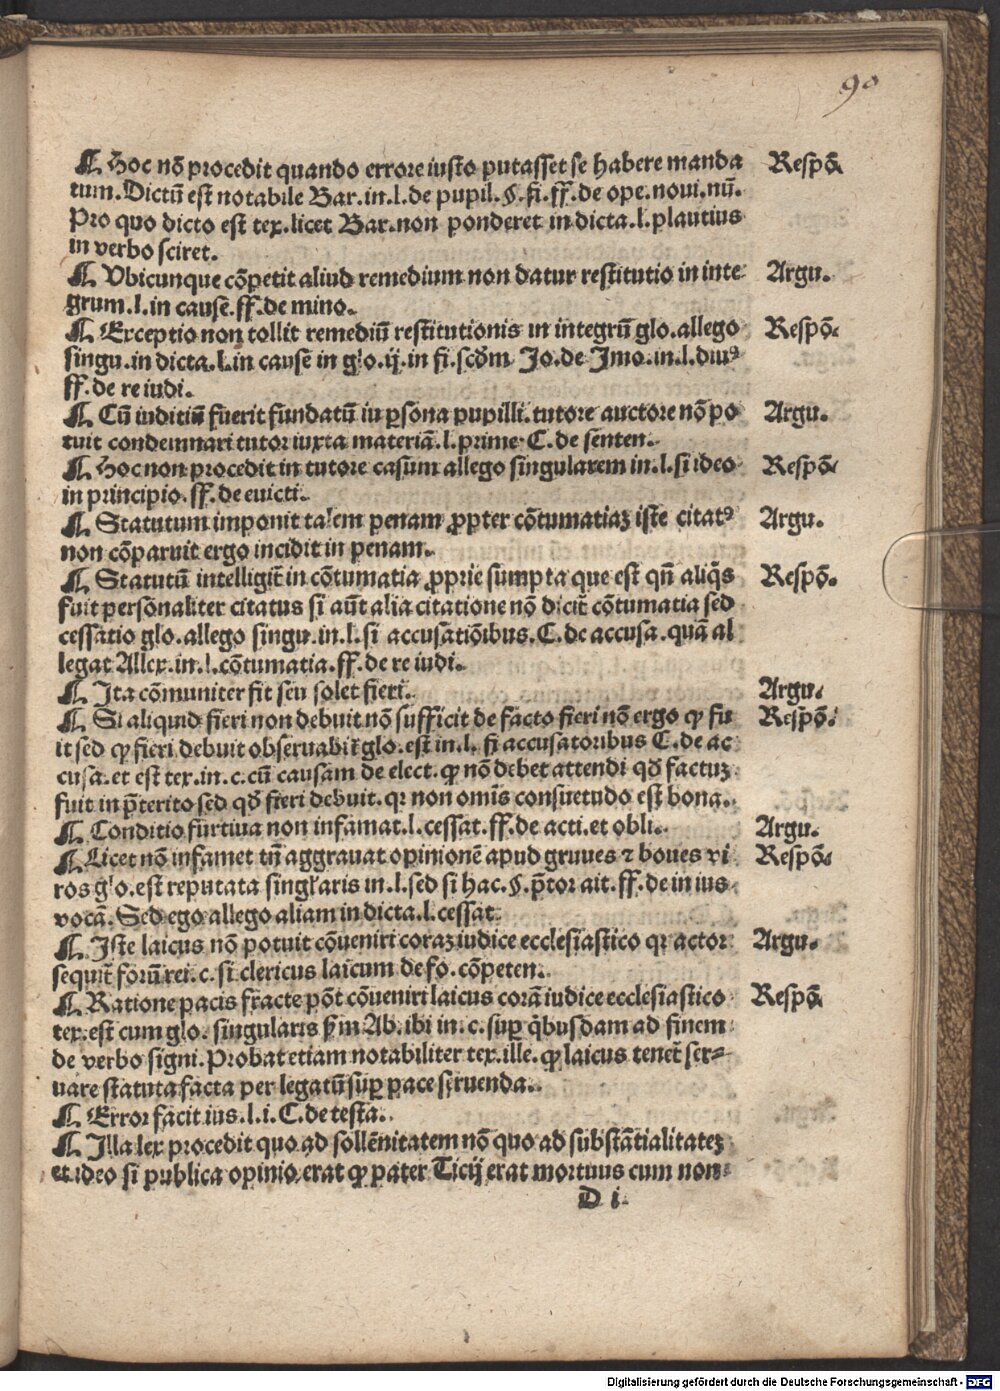 90
¶ Hoc nō procedit quando errore iusto putasset se habere manda Respō.
tum. Dictū est notabile Bar. in. l. de pupil. §. fi. ff. de ope. noui. nū.
Pro quo dicto est tex. licet Bar. non ponderet in dicta. l. plautius
in verbo sciret.
¶ Vbicunque cōpetit aliud remedium non datur restitutio in inte Argu.
grum. l. in cause. ff. de mino.
¶ Exceptio non tollit remediū restitutionis in integrū glo. allego Respō.
singu. in dicta. l. in cause in glo. ij. in fi. scd'm Jo. de Jmo. in. l. diuꝰ
ff. de re iudi.
¶ Cū iuditiū fuerit fundatū in ꝑsona pupilli. tutore auctore nō po Argu.
tuit condemnari tutor iuxta materiā. l. prime. C. de senten.
¶ Hoc non procedit in tutore casum allego singularem in. l. si ideo Respō.
in principio. ff. de euicti.
¶ Statutum imponit talem penam ꝓpter cōtumatiaꝫ iste citatꝰ Argu.
non cōparuit ergo incidit in penam.
¶ Statutū intelligit̄ in cōtumatia ꝓprie sumpta que est qn̄ aliq̄s Respō.
fuit personaliter citatus si aūt alia citatione nō dicit̄ cōtumatia sed
cessatio glo. allego singu. in. l. si accusatiōibus. C. de accusa. quā al
legat Allex. in. l. cōtumatia. ff. de re iudi.
¶ Ita cōmuniter fit seu solet fieri. Argu.
¶ Si aliquid fieri non debuit nō sufficit de facto fieri nō ergo ꝙ fu Respō.
it sed ꝙ fieri debuit obseruabit̄ glo. est in. l. si accusatoribus C. de ac
cusa. et est tex. in. c. cū causam de elect. ꝙ nō debet attendi qd̄ factuꝫ
fuit in p̄terito sed qd̄ fieri debuit. qr non omīs consuetudo est bona.
¶ Conditio furtiua non infamat. l. cessat. ff. de acti. et obli. Argu.
¶ Licet nō infamet tn̄ aggrauat opinionē apud gruues ⁊ bonos vi Respō.
ros glo. est reputata singl'aris in. l. sed si hac. §. p̄tor ait. ff. de in ius
vocā. Sed ego allego aliam in dicta. l. cessat.
¶ Iste laicus nō potuit cōueniri coraꝫ iudice ecclesiastico qr actor Argu.
sequit̄ forū rei. c. si clericus laicum de fo. cōpeten.
¶ Ratione pacis fracte pōt cōueniri laicus corā iudice ecclesiastico Respō.
tex. est cum glo. singularis ẜm Ab. ibi in. c. suꝑ q̄busdam ad finem
de verbo signi. Probat etiam notabiliter tex. ille. ꝙ laicus tenet̄ ser-
uare statuta facta per legatū suꝑ pace seruenda.
¶ Error facit ius. l. i. C. de testa.
¶ Illa lex procedit quo ad sollēnitatem nō quo ad substātialitateꝫ
et ideo si publica opinio erat ꝙ pater Ticij erat mortuus cum non
D i
Digitalisierung gefördert durch die Deutsche Forschungsgemeinschaft - DFG